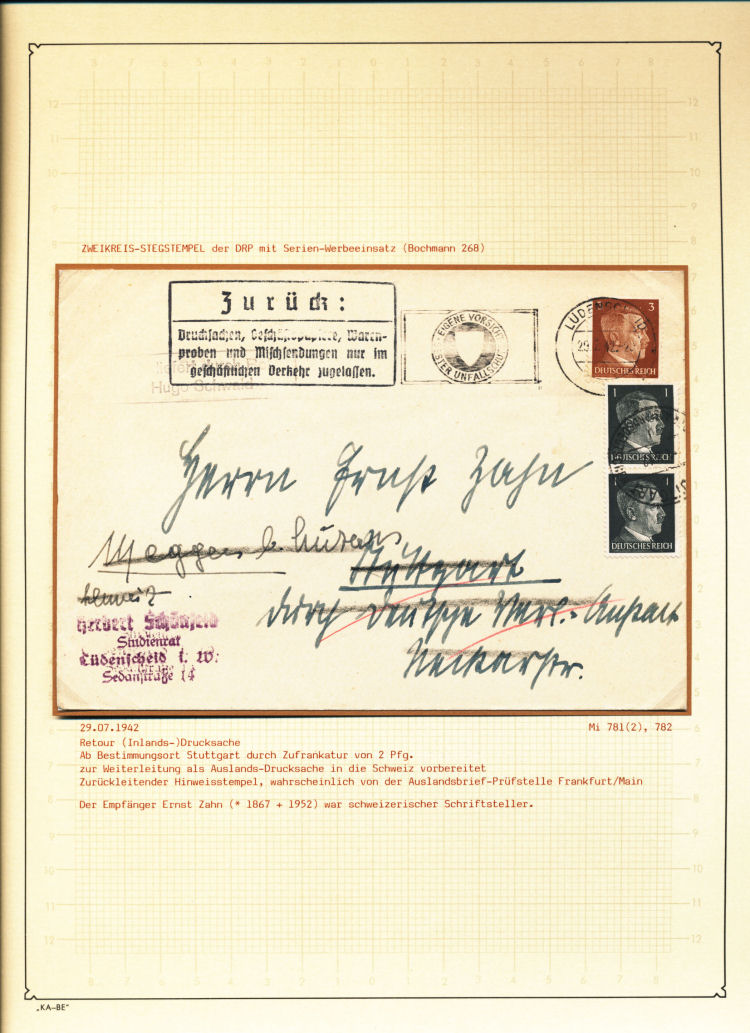 ZWEIKREIS-STEGSTEMPEL der DRP mit Serien-Werbeeinsatz (Bochmann 268)
Zurück:
Drucksachen, Geschäftspapiere, Waren-
proben und Mischsendungen nur im
geschäftlichen Verkehr zugelassen.
Hugo Schwald
EIGENE VORSICHT
STER UNFALLSCHUTZ
LÜDENSCHEID
3
DEUTSCHES REICH
1 1
DEUTSCHES REICH
1 1
DEUTSCHES REICH
Herrn Ernst Zahn
Meggen b. Luzern
Stuttgart
Schweiz
durch Deutsche Verl.-Anstalt
Neckarstr.
Herbert Schönfeld
Studienrat
Lüdenscheid i. W.
Sedanstraße 14
29.07.1942 Mi 781(2), 782
Retour (Inlands-)Drucksache
Ab Bestimmungsort Stuttgart durch Zufrankatur von 2 Pfg.
zur Weiterleitung als Auslands-Drucksache in die Schweiz vorbereitet
Zurückleitender Hinweisstempel, wahrscheinlich von der Auslandsbrief-Prüfstelle Frankfurt/Main
Der Empfänger Ernst Zahn (* 1867 + 1952) war schweizerischer Schriftsteller.
„KA-BE"